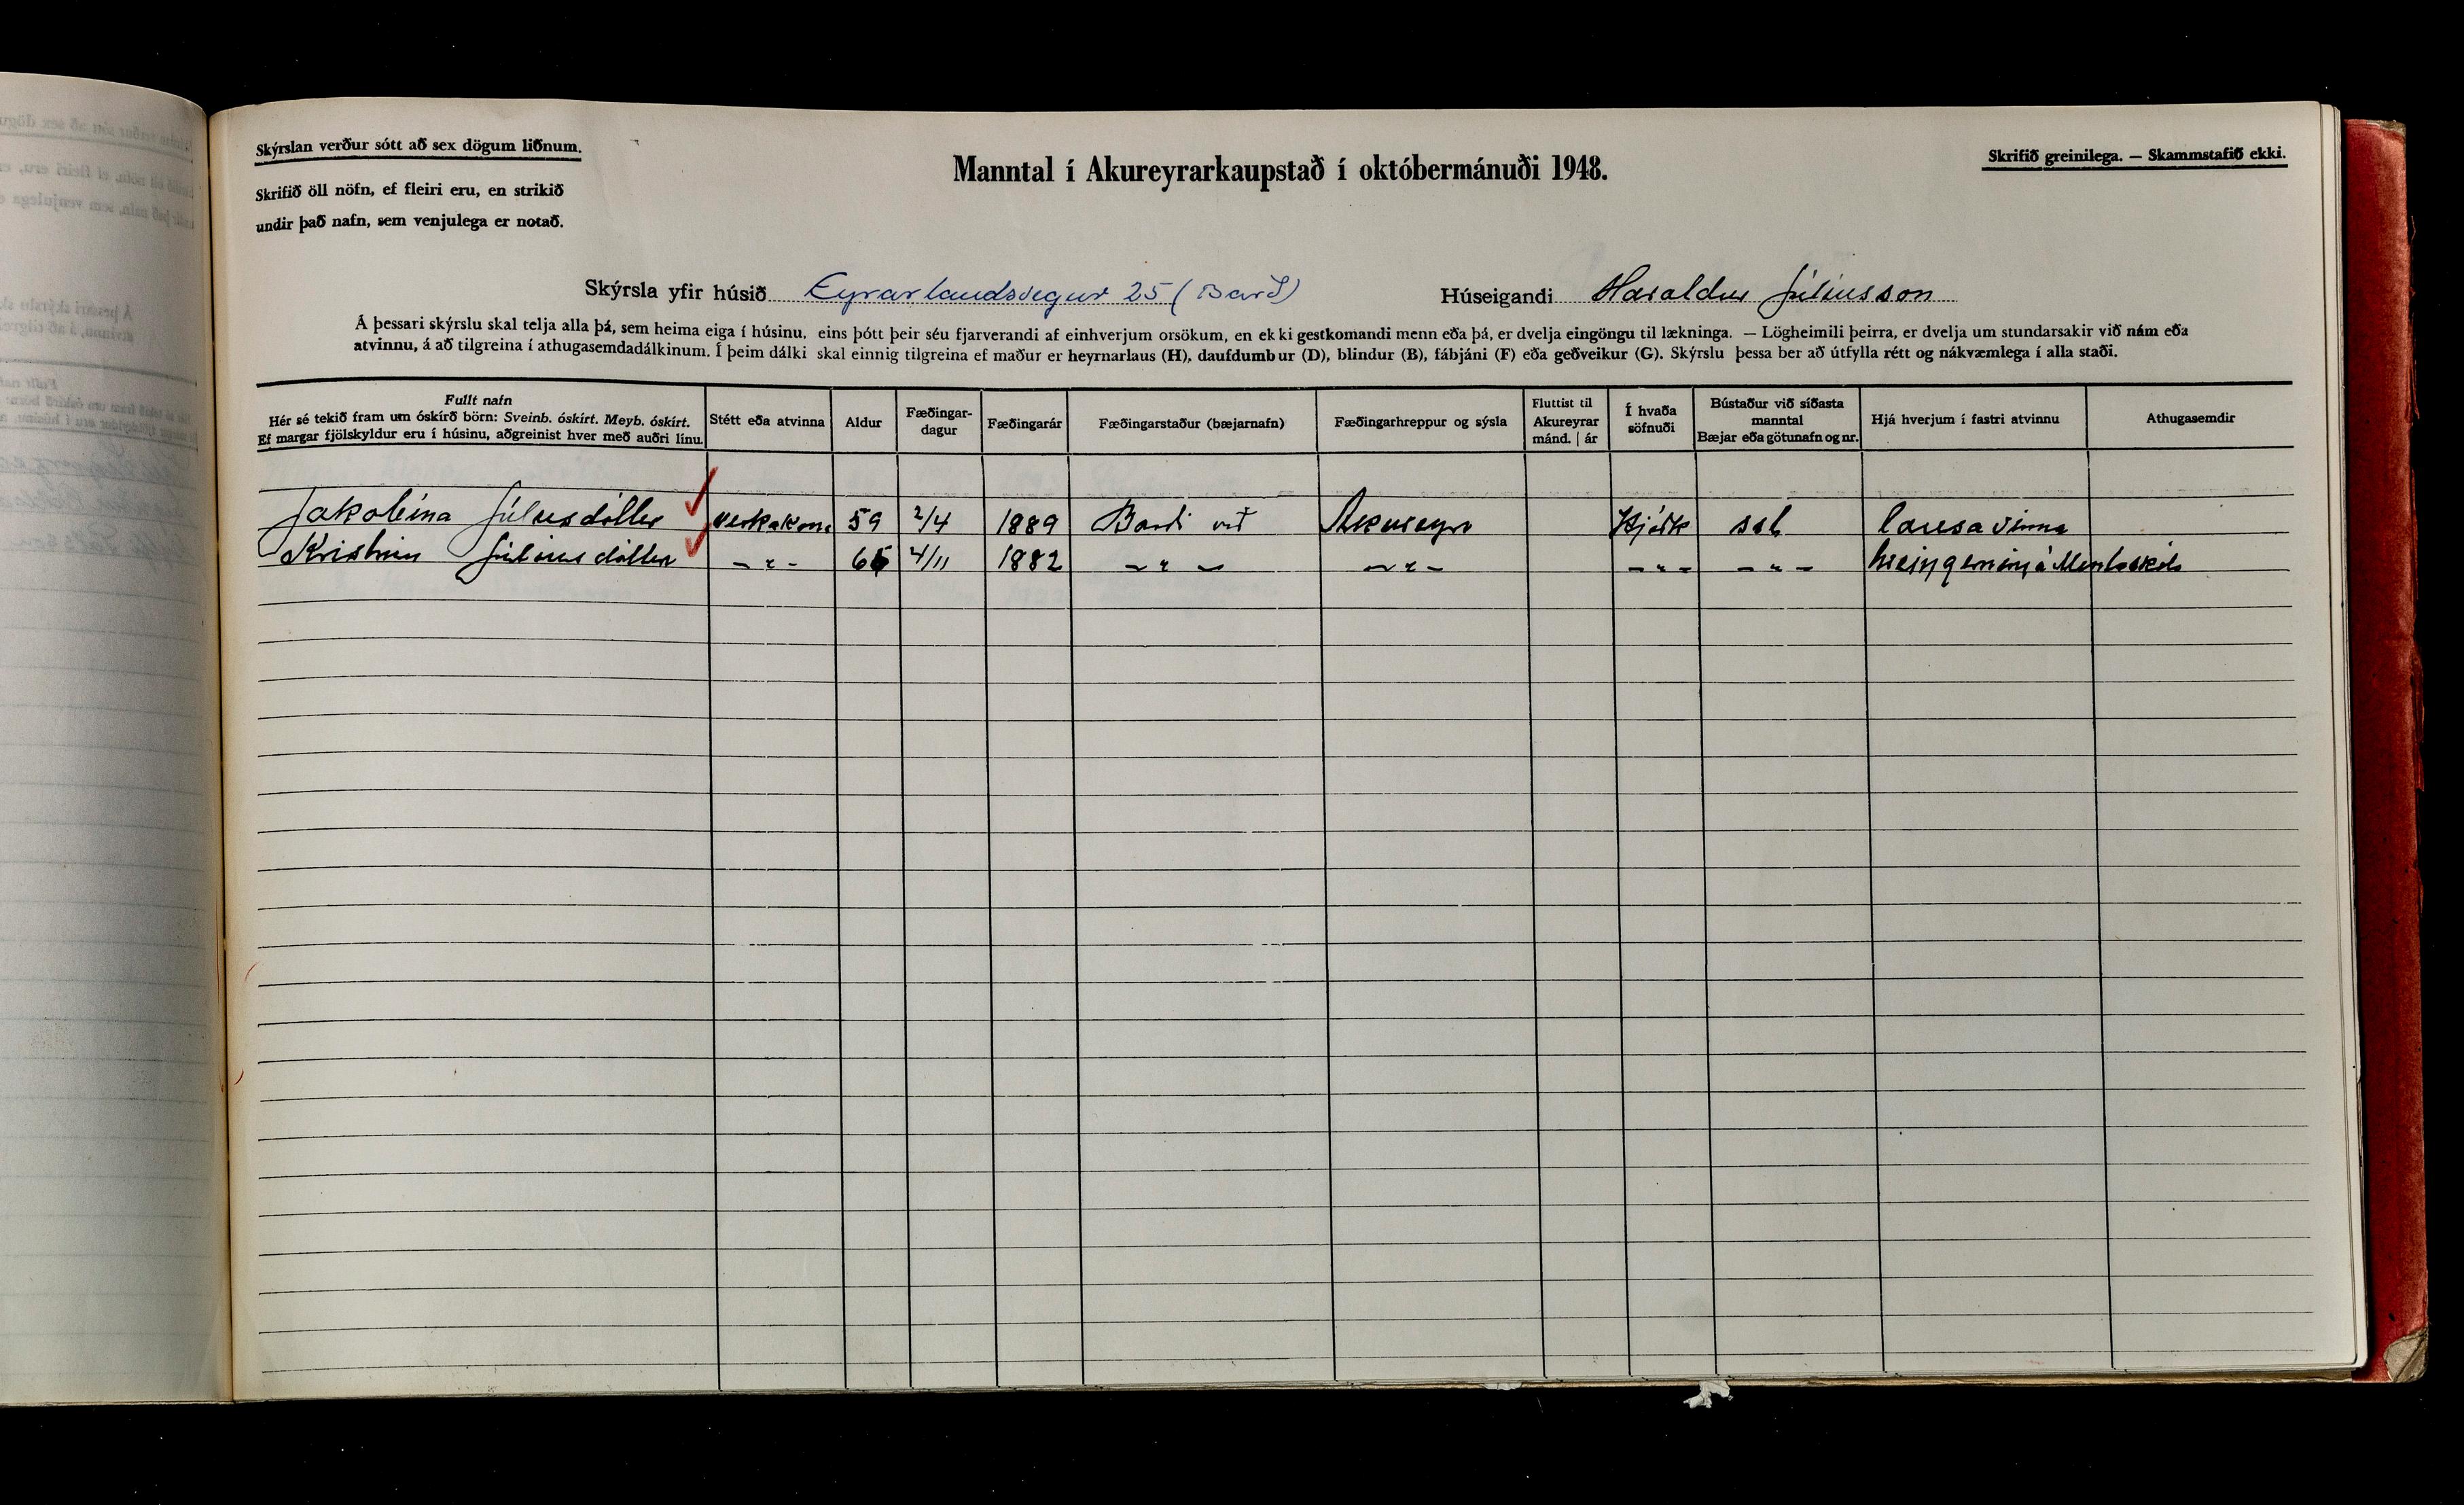 Skýrslan verður sótt að sex dögum liðnum.
Skrifið öll nöfn, ef fleiri eru, en strikið
undir það nafn, sem venjulega er notað.
Manntal í Akureyrarkaupstað í októbermánuði 1948.
Skrifið greinilega. — Skammstafið ekki.
Skýrsla yfir húsið Eyrarlandsvegur 25 (Barð) Húseigandi Haraldur Júlíusson
Á þessari skýrslu skal telja alla þá, sem heima eiga í húsinu, eins þótt þeir séu fjarverandi af einhverjum orsökum, en ekki gestkomandi menn eða þá, er dvelja eingöngu til lækninga. — Lögheimili þeirra, er dvelja um stundarsakir við nám eða
atvinnu, á að tilgreina í athugasemdadálkinum. Í þeim dálki skal einnig tilgreina ef maður er heyrnarlaus (H), daufdumbur (D), blindur (B), fábjáni (F) eða geðveikur (G). Skýrslu þessa ber að útfylla rétt og nákvæmlega í alla staði.
Fullt nafn
Hér sé tekið fram um óskírð börn: Sveinb. óskírt. Meyb. óskírt.
Ef margar fjölskyldur eru í húsinu, aðgreinist hver með auðri línu.
Stétt eða atvinna
Aldur
Fæðingar-
dagur
Fæðingarár
Fæðingarstaður (bæjarnafn)
Fæðingarhreppur og sýsla
Fluttist til
Akureyrar
mánd. | ár
Í hvaða
söfnuði
Bústaður við síðasta
manntal
Bæjar eða götunafn og nr.
Hjá hverjum í fastri atvinnu
Athugasemdir
Jakobína Júlusdóttir verkakona 59 2/4 1889 Barði við Akureyri Þjóðk ssh lausavinna
Kristnin Júlíusdóttir — " — 66 4/11 1882 — " — — " — — " — — " — hreingerning á Mentaskóla